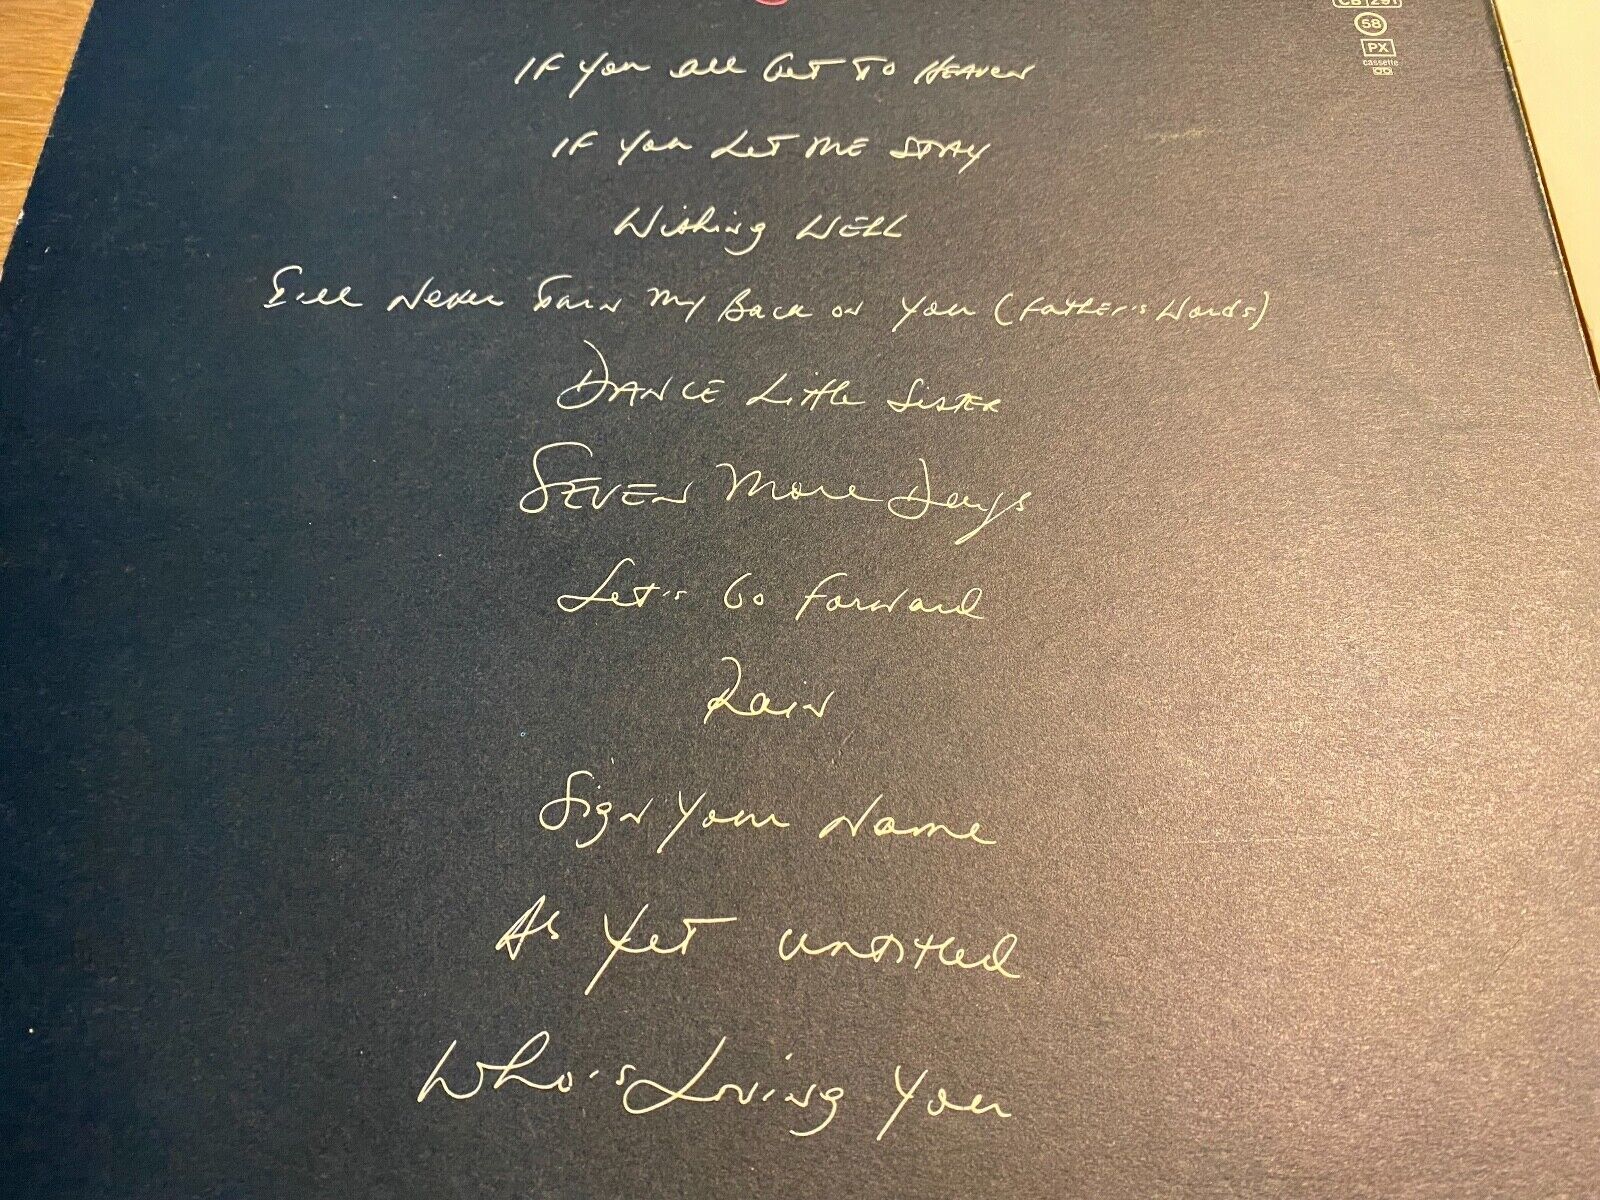 CB 291
58
PX
cassette
IF You all Get To Heaven
IF You Let ME STAY
Wishing WELL
I'll Never Turn My Back on You (Father's Words)
DANCE Little Sister
SEVEN More Days
Let's Go Forward
Rain
Sign Your Name
As Yet Untitled
Who's Loving You